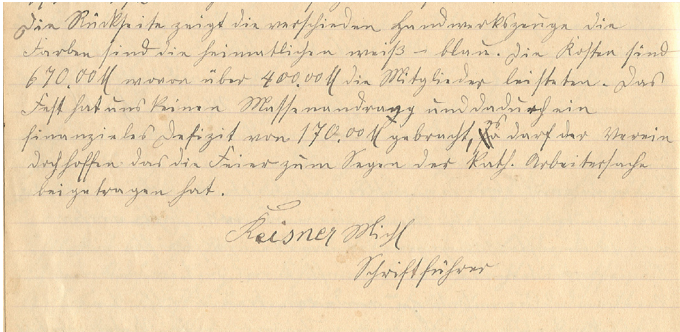 Die Rückseite zeigt die verschieden Handwerkszeuge die
Farben sind die heimatlichen weiß - blau. Die Kosten sind
670.00 M wovon über 400.00 M die Mitglieder leisteten. Das
Fest hat uns keinen Massenandrang und dadurch ein
finanzieles Defizit von 170.00 M gebracht, darf der Verein
doch hoffen das die Feier zum Segen der kath. Arbeitersache
beigetragen hat.
Keisner Michl
Schriftführer